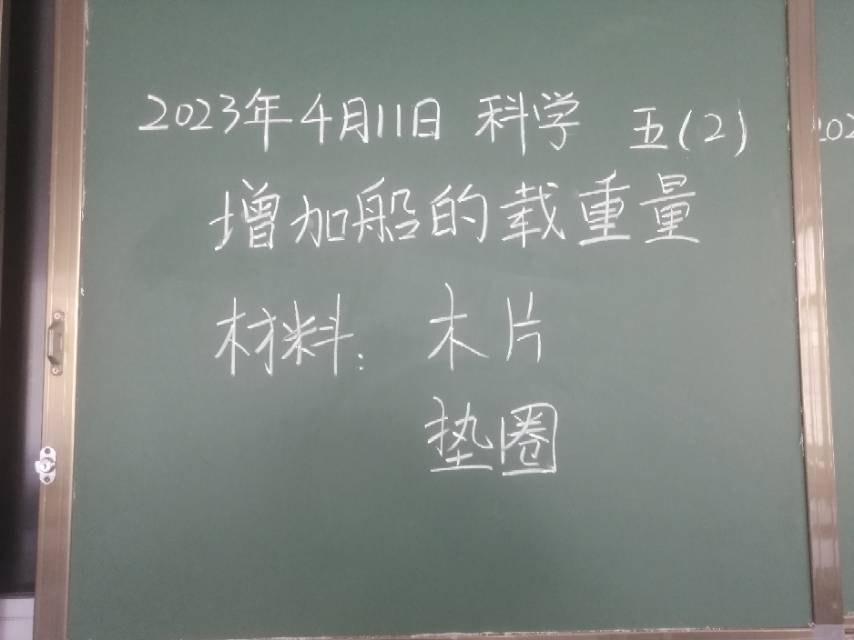 2023年4月11日 科学 五(2)
增加船的载重量
材料：木片
垫圈
202